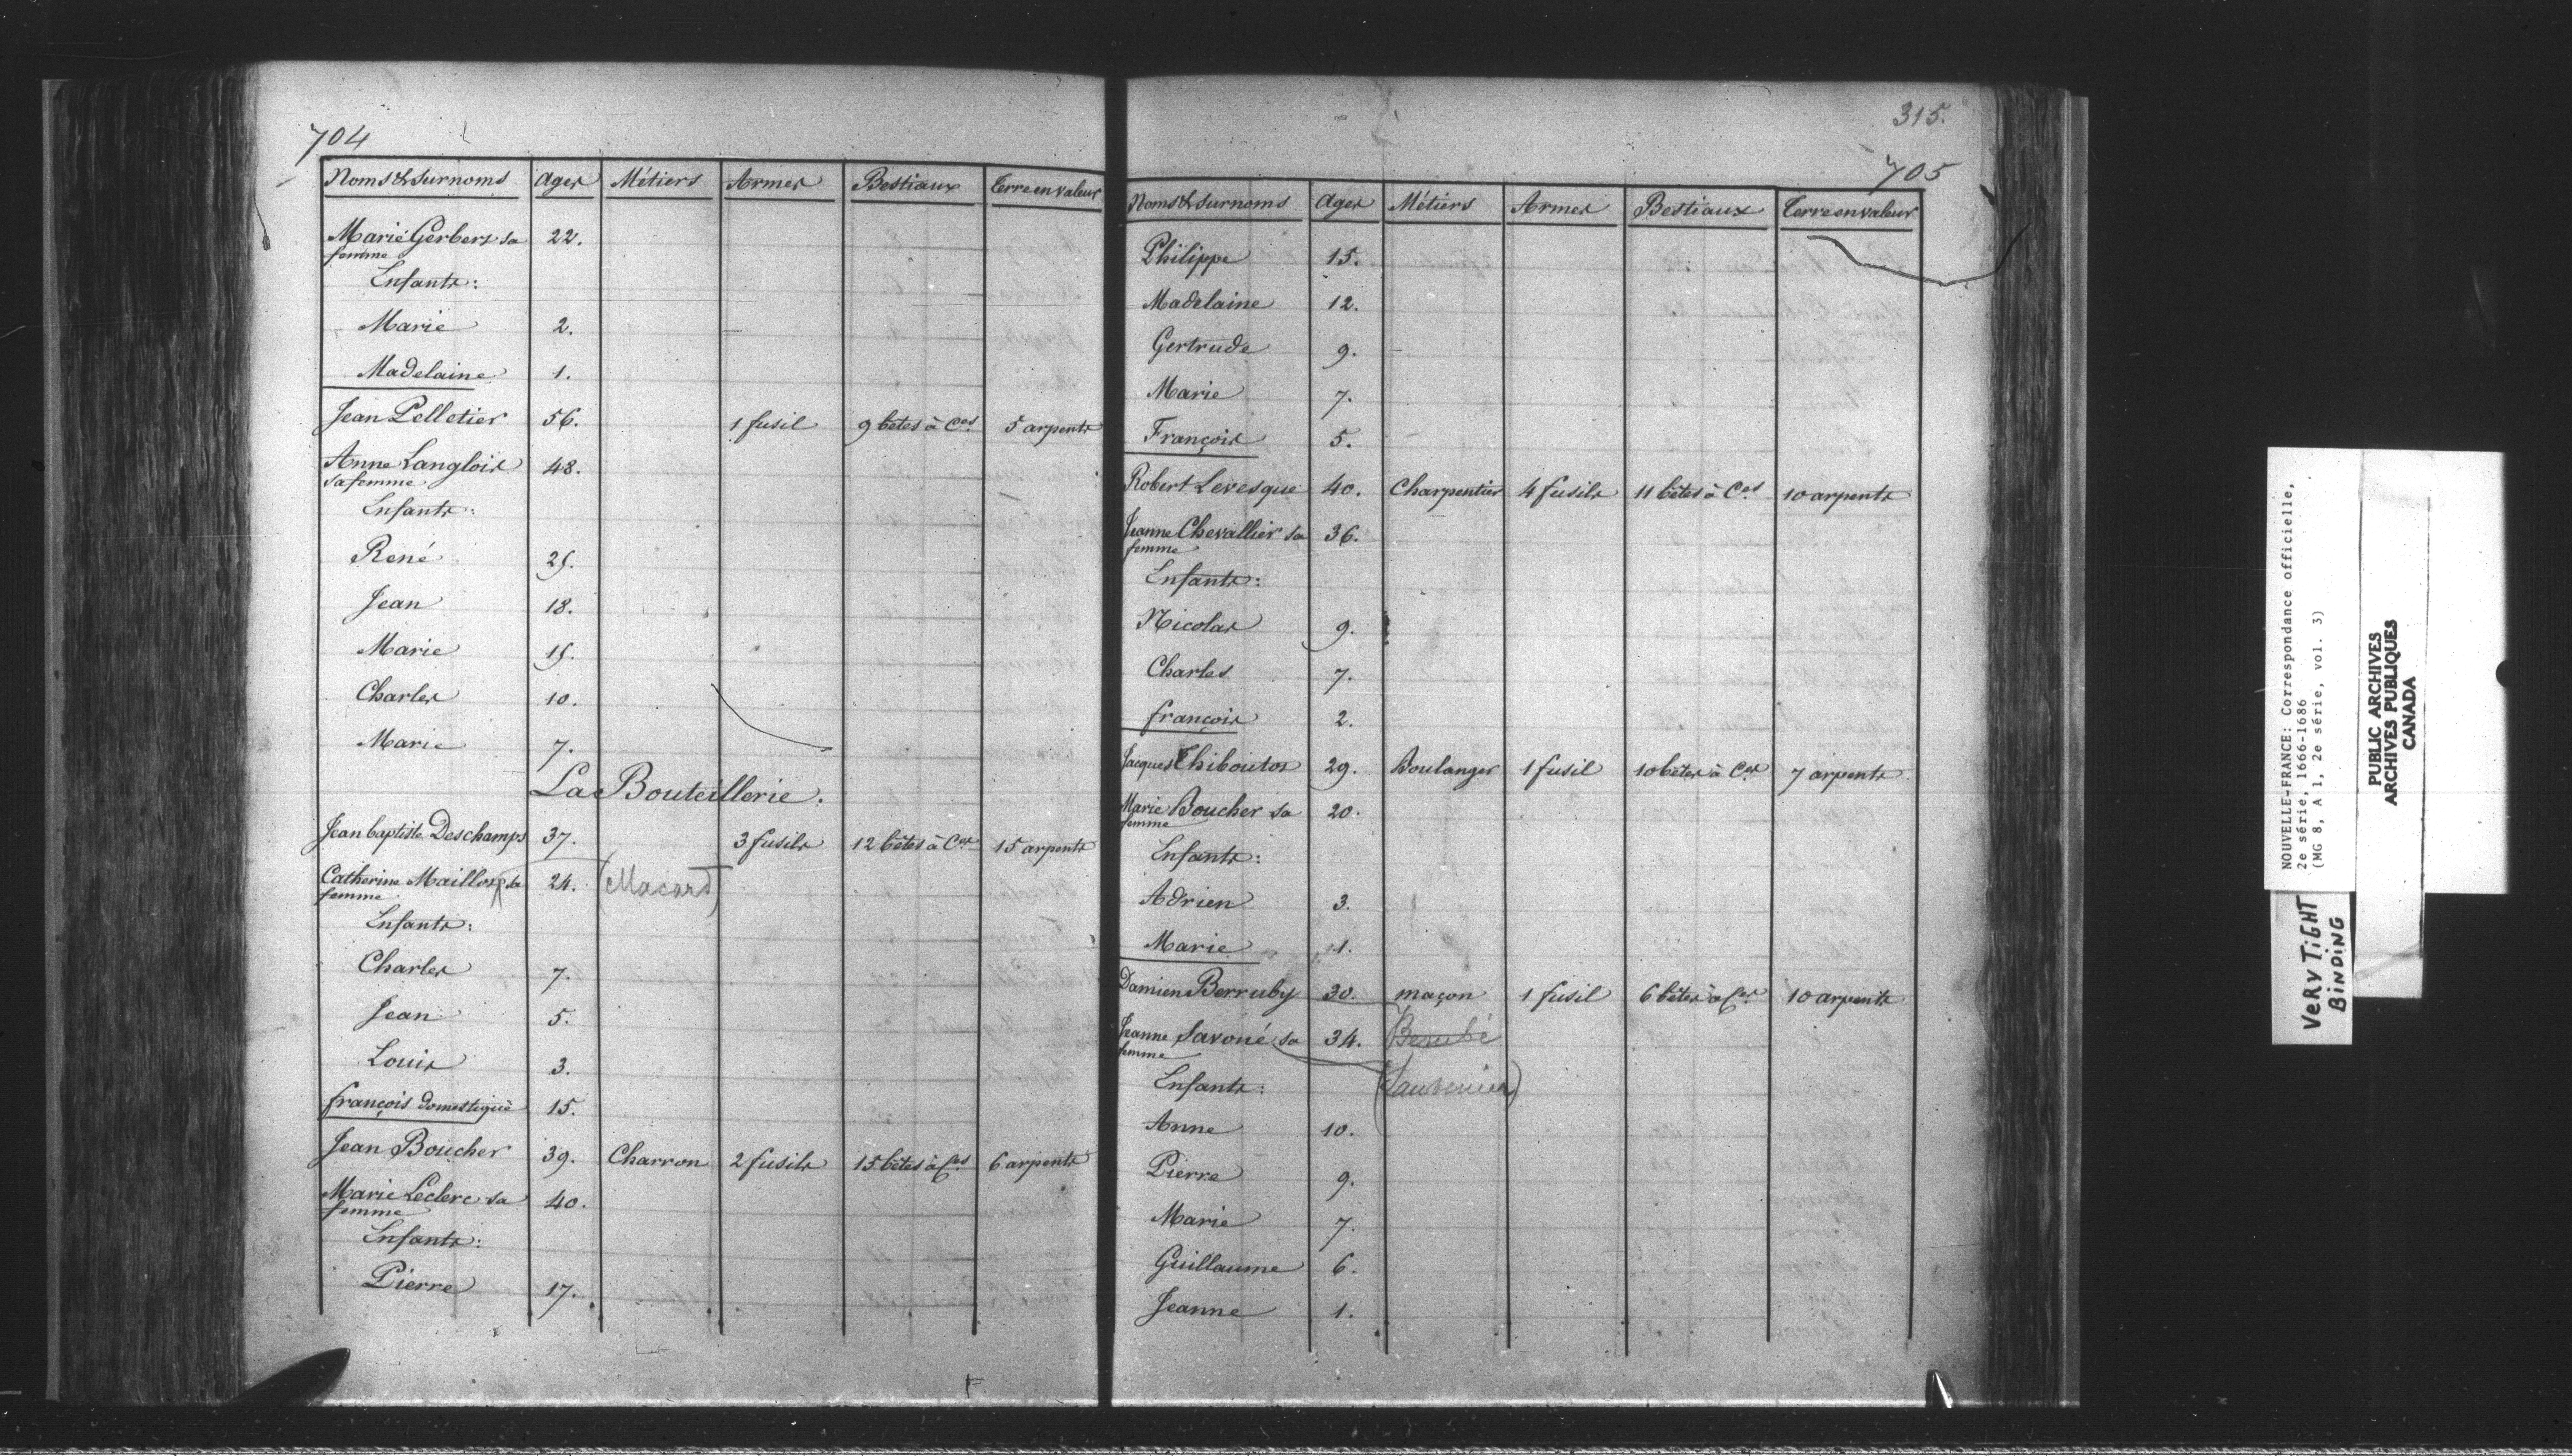 704
Noms & Surnoms Ages Métiers Armes Bestiaux Terre en valeur
Marie Gerbert sa 22.
femme
Enfants:
Marie 2.
Madelaine 1.
Jean Pelletier 56. 1 fusil 9 bêtes à Ces 5 arpents
Anne Langlois 48.
sa femme
Enfants:
René 25.
Jean 18.
Marie 15.
Charles 10.
Marie 7.
La Bouteillerie.
Jean baptiste Deschamps 37. 3 fusils 12 bêtes à Ces 15 arpents
Catherine sa 24. (Macard)
femme
Enfants:
Charles 7.
Jean 5.
Louis 3.
françois domestique 15.
Jean Boucher 39. Charron 2 fusils 15 bêtes à Ces 6 arpents
Marie Leclerc sa 40.
femme
Enfants:
Pierre 17.
315.
705
Noms & Surnoms Ages Métiers Armes Bestiaux Terre en valeur
Philippe 15.
Madelaine 12.
Gertrude 9.
Marie 7.
François 5.
Robert Levesque 40. Charpentier 4 fusils 11 bêtes à Ces 10 arpents
Jeanne Chevallier sa 36.
femme
Enfants:
Nicolas 9.
Charles 7.
françois 2.
Jacques Thiboutos 29. Boulanger 1 fusil 10 bêtes à Ces 7 arpents
Marie Boucher sa 20.
femme
Enfants:
Adrien 3.
Marie 1.
Damien Berruby 30. maçon 1 fusil 6 bêtes à Ces 10 arpents
Jeanne Savoné sa 34. (Berubé
femme
Enfants:
Anne 10.
Pierre 9.
Marie 7.
Guillaume 6.
Jeanne 1.
NOUVELLE-FRANCE: Correspondance officielle,
2e série, 1666-1686
(MG 8, A 1, 2e série, vol. 3)
PUBLIC ARCHIVES
ARCHIVES PUBLIQUES
CANADA
VERY TIGHT
BINDING